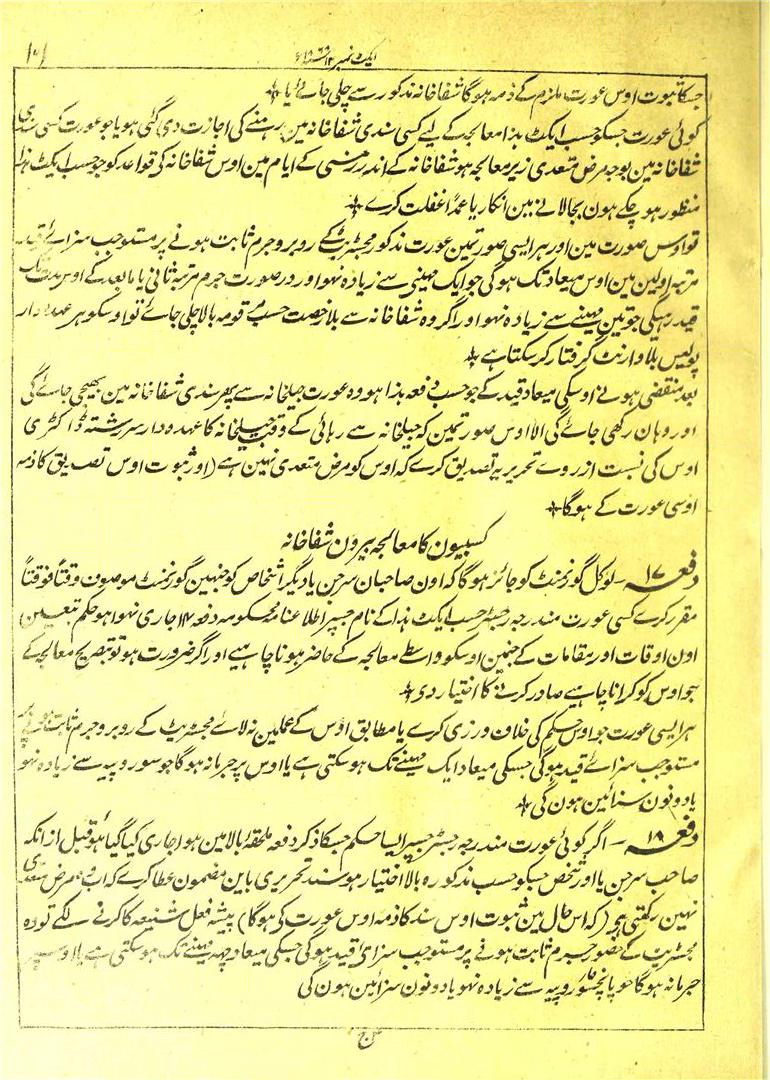 ایکٹ نمبر ۱۲ سنہ ۱۸۶۹ع
جسکا ثبوت اوس عورت ملزم کے ذمہ ہوگا شفاخانہ مذکور سے چلی جائے یا
کوئی عورت جسکو حسب ایکٹ ہذا معالجہ کے لیے کسی سندی شفاخانہ مین رہنے کی اجازت دی گئی ہو یا جو عورت کسی سندی
شفاخانہ مین بوجہ مرض متعدی زیر معالجہ ہو شفاخانہ کے اندر رہنے کے ایام مین اوس شفاخانہ کی قواعد کو جو حسب ایکٹ ہذا
منظور ہو چکے ہون بجا لانے مین انکار یا عمداً غفلت کرے
تو اوس صورت مین اور ہر ایسی صورتمین عورت مذکور مجسٹریٹ کے روبرو جرم ثابت ہونے پر مستوجب سزائے قید
مرتبہ اولین مین اوس میعاد تک ہوگی جو ایک مہینی سے زیادہ نہو اور در صورت جرم مرتبہ ثانی یا ما بعد کے اوس مدت تک
قید رہیگی جو تین مہینے سے زیادہ نہو اور اگر وہ شفاخانہ سے بلا رخصت حسب مرقومہ بالا چلی جائے تو اوسکو ہر عہدہ دار
پولیس بلا وارنٹ گرفتار کر سکتا ہے
بعد منقضی ہونے اوسکی میعاد قید کے جو حسب دفعہ ہذا ہو وہ عورت جیلخانہ سے پھر سندی شفاخانہ مین بھیجی جائے گی
اور وہان رکھی جائے گی الا اوس صورتمین کہ جیلخانہ سے رہائی کے وقت جیلخانہ کا عہدہ دار سررشتہ ڈاکٹری
اوس کی نسبت از روے تحریر یہ تصدیق کرے کہ اوس کو مرض متعدی نہین ہے (اور ثبوت اوس تصدیق کا ذمہ
اوسی عورت کے ہوگا
کسبیون کا معالجہ بیرون شفاخانہ
دفعہ ۱۷ ۔ لوکل گورنمنٹ کو جائز ہوگا کہ اون صاحبان سرجن یا دیگر اشخاص کو جنہین گورنمنٹ موصوف وقتاً فوقتاً
مقرر کرے کسی عورت مندرجہ رجسٹر حسب ایکٹ ہذا کے نام جسپر اطلاعنامہ محکومہ دفعہ ۱۴ جاری نہوا ہو حکم بتعیین
اون اوقات اور مقامات کے جنمین اوسکو واسطے معالجہ کے حاضر ہونا چاہیے اور اگر ضرورت ہو تو بتصریح معالجہ کے
جو اوس کو کرانا چاہیے صادر کرنے کا اختیار دی
ہر ایسی عورت جو اوس حکم کی خلاف ورزی کرے یا مطابق اوس کے عمل مین نہ لائے مجسٹریٹ کے روبرو جرم ثابت ہونے پر
مستوجب سزائے قید ہوگی جسکی میعاد ایک مہینے تک ہو سکتی ہے یا اوس پر جرمانہ ہوگا جو سو روپیہ سے زیادہ نہو
یا دونون سزائین ہون گی
دفعہ ۱۸ ۔ اگر کوئی عورت مندرجہ رجسٹر جسپر ایسا حکم جسکا ذکر دفعہ ملحقہ بالا مین ہوا جاری کیا گیا ہو قبل ازانکہ
صاحب سرجن یا اور شخص جسکو حسب مذکورہ بالا اختیار ہو سند تحریری باین مضمون عطا کرے کہ اب وہ مرض متعدی
نہین رکھتی ہے (کہ اس حال مین ثبوت اوس سند کا ذمہ اوس عورت کی ہوگا) پیشہ فعل شنیعہ کا کرنے لگے تو وہ
مجسٹریٹ کے حضور جرم ثابت ہونے پر مستوجب سزای قید ہوگی جسکی میعاد چھہ مہینے تک ہو سکتی ہے یا اوسپر
جرمانہ ہوگا جو پانچسو روپیہ سے زیادہ نہو یا دونون سزائین ہون گی